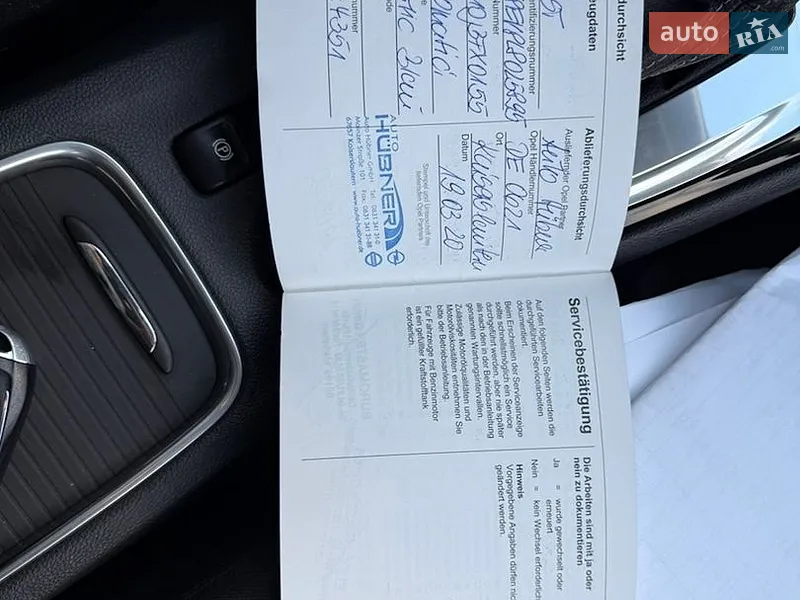 auto RIA.com
durchsicht
eugdaten
entifizierungsnummer
nummer
ode
nummer
4351
Ablieferungsdurchsicht
Ausliefernder Opel Partner
Auto Hübner
Opel Händlernummer
DE 0621
Ort
Kaiserslautern
Datum
19.03.20
Stempel und Unterschrift des
liefernden Opel Partners
AUTO
HÜBNER
Auto Hübner GmbH
Mainzer Straße 101
67657 Kaiserslautern
www.auto-huebner.de
Servicebestätigung
Auf den folgenden Seiten werden die
durchgeführten Servicearbeiten
dokumentiert.
Beim Erscheinen der Serviceanzeige
sollte schnellstmöglich ein Service
durchgeführt werden, aber nie später
als nach den in der Betriebsanleitung
genannten Wartungsintervallen.
Zulässige Motorölqualitäten und
Motorölviskositäten entnehmen Sie
bitte der Betriebsanleitung.
Für Fahrzeuge mit Benzinmotor
ist ein gefüllter Kraftstofftank
erforderlich.
Die Arbeiten sind mit ja oder
nein zu dokumentieren
Ja = wurde gewechselt oder
erneuert
Nein = kein Wechsel erforderlich
Hinweis
Vorgegebene Angaben dürfen nic
geändert werden.
P